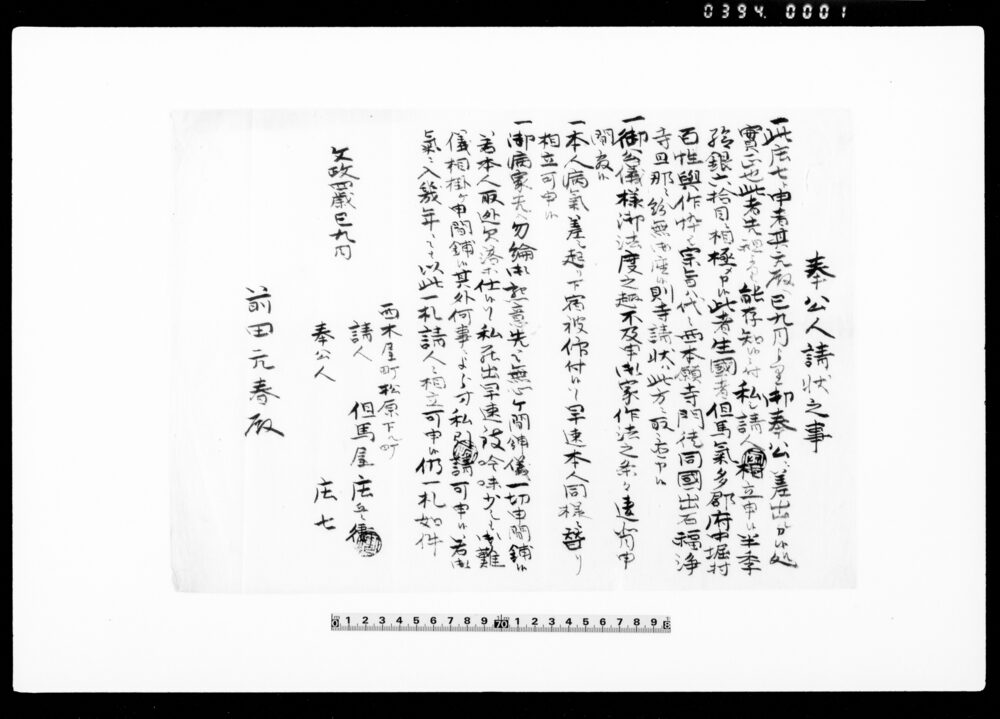 0394. 0001
奉公人請状之事
一此庄七と申者其元殿へ巳九月より里 御奉公ニ差出シ候処
実正也此者先祖より能存知候ニ付私共請人ニ相立申候半季
給銀六拾目ニ相極メ候此者生国者但馬気多郡府中堀村
百性與作忰ニ宗旨ハ代々西本願寺門徒同国出石福浄
寺旦那ニ紛無御座候則寺請状ハ此方へ取置申候
一御公儀様御法度之趣不及申御家作法之条々違背申
間敷候
一本人病気差起り下宿被仰付候ハヽ早速本人同様之替り
相立可申候
一御病家先へ勿論御懇意先ニ而無心ケ間鋪儀一切申間鋪候
若本人取迯欠落等仕候ハヽ私罷出早速被吟味少しも御難
儀相掛ケ申間鋪候其外何事ニよらず私引請可申候若御
気ニ入幾年ニ而も以此一札請人ニ相立可申候仍一札如件
文政四歳巳九月
西木屋町松原下ル町
請人 但馬屋庄兵衛
奉公人 庄七
前田元春殿
0 1 2 3 4 5 6 7 8 9 70 1 2 3 4 5 6 7 8 9 8